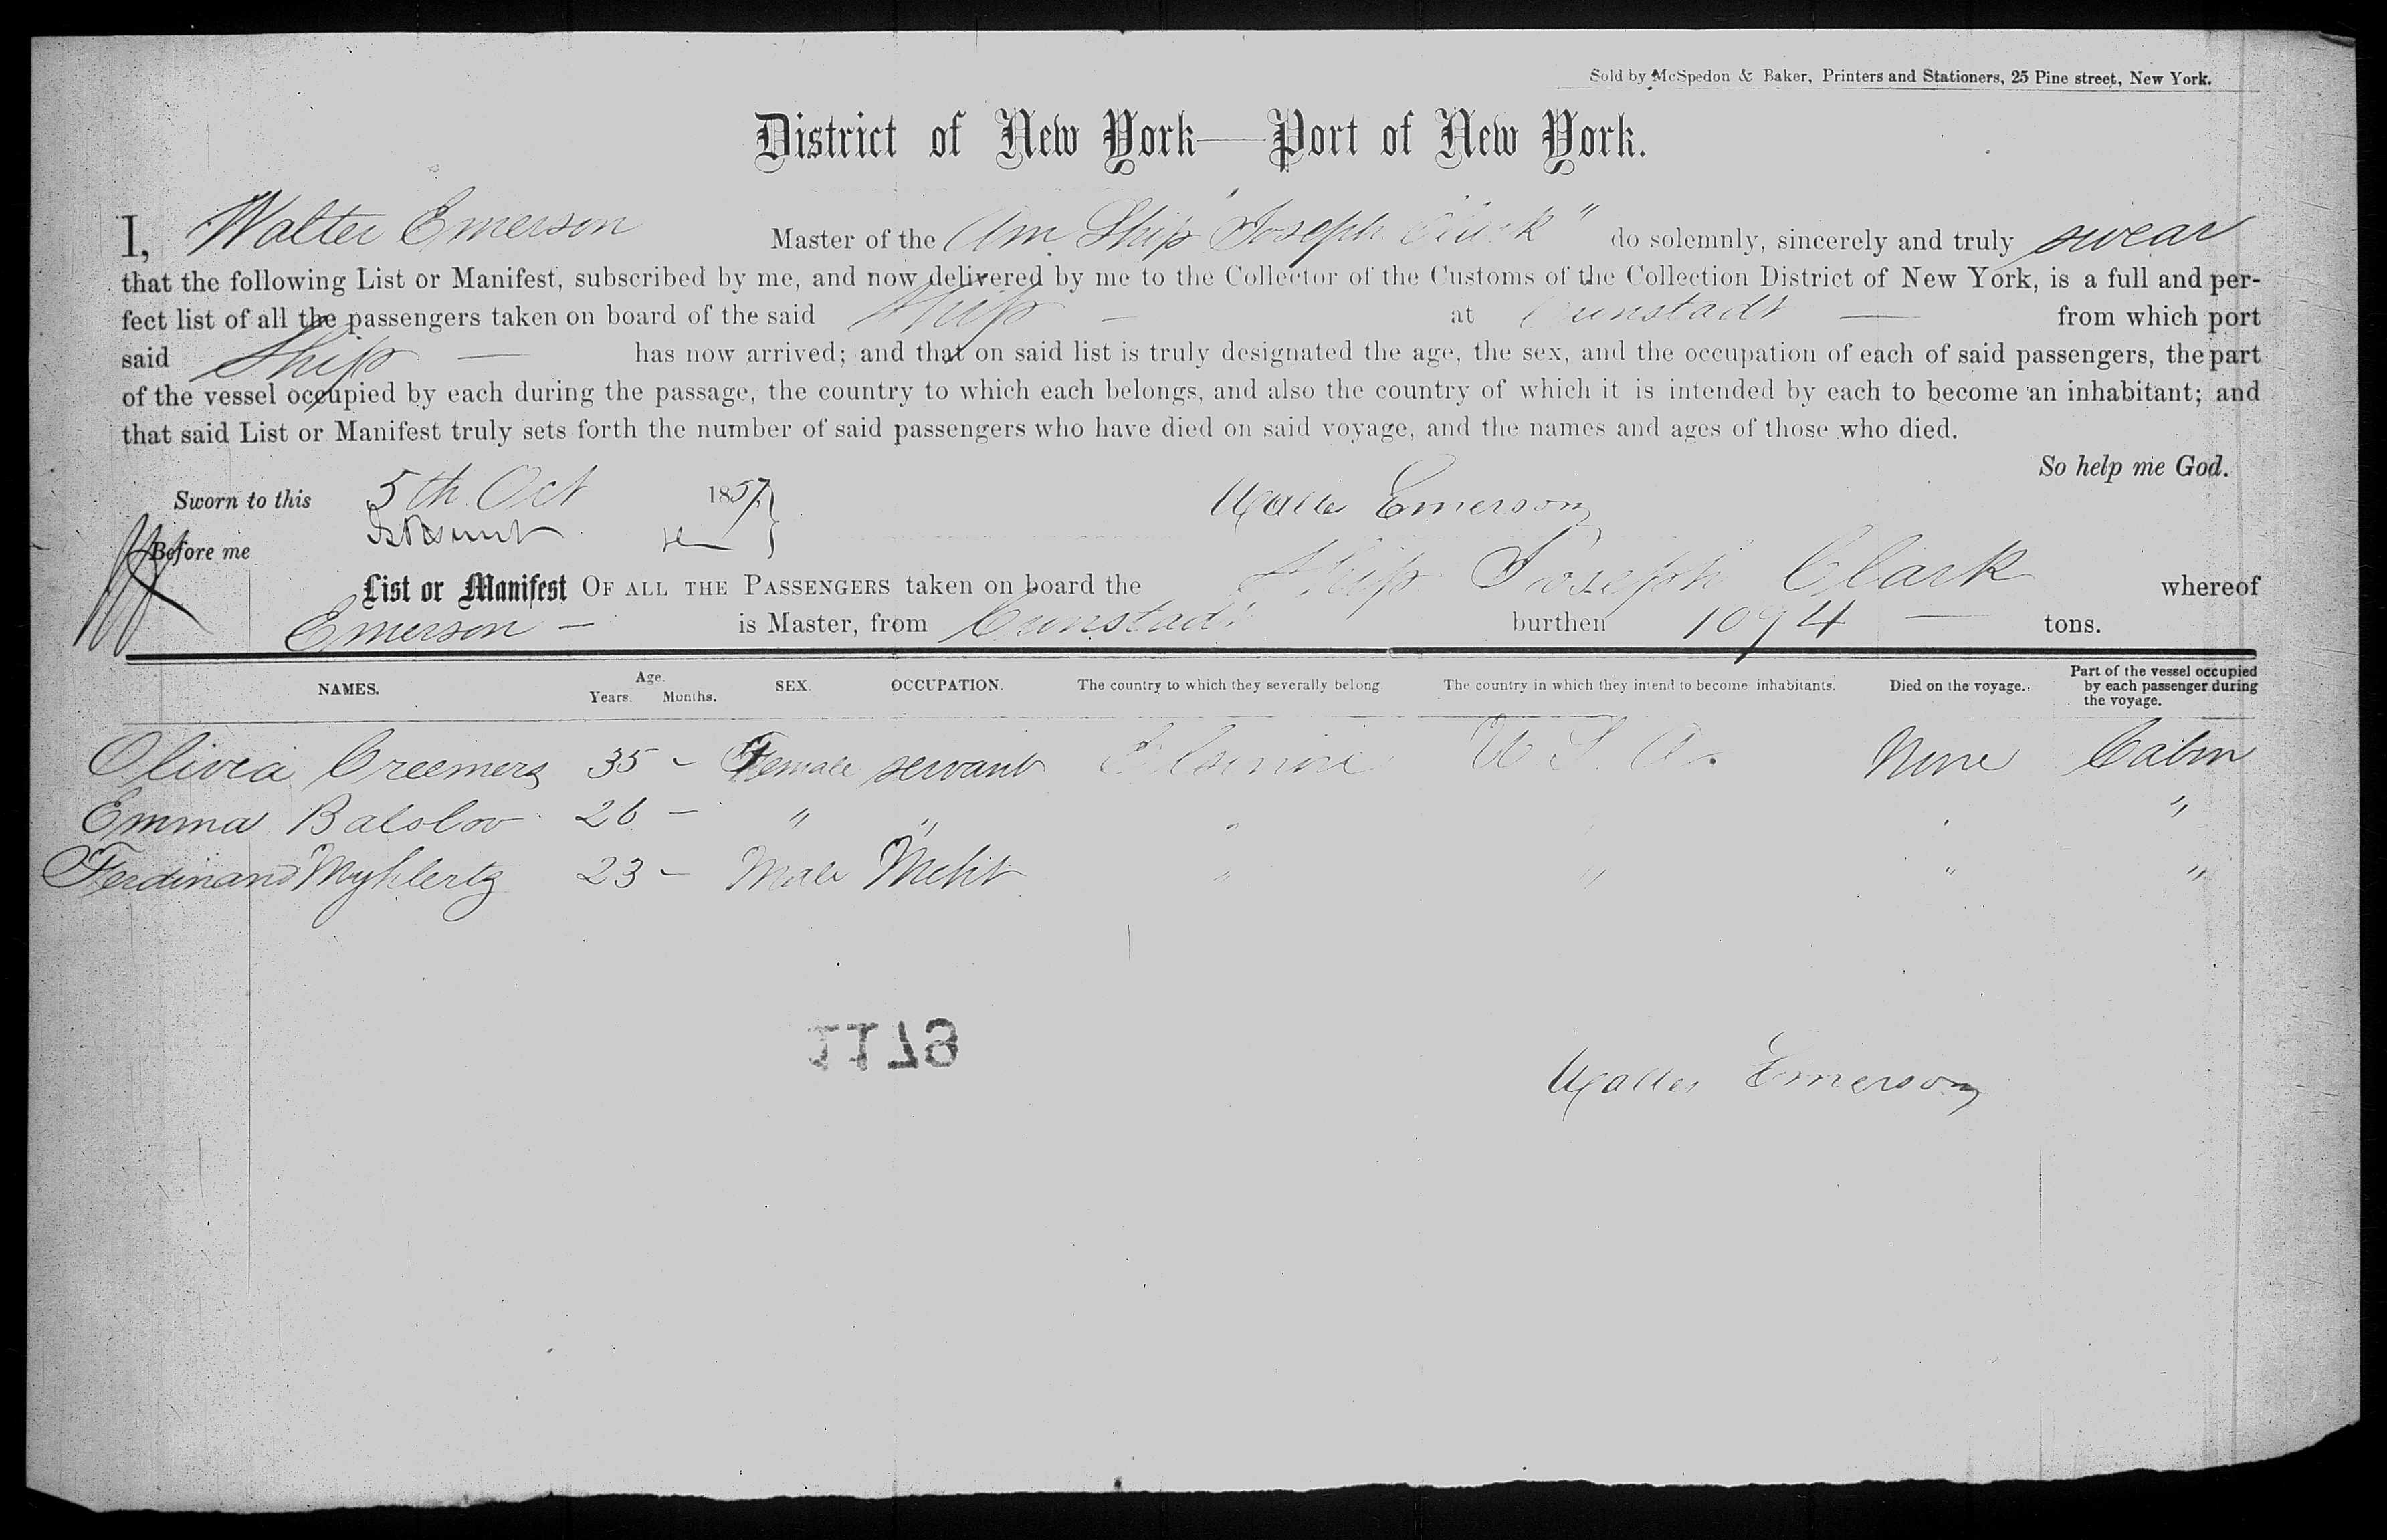 Sold by McSpedon & Baker, Printers and Stationers, 25 Pine street, New York.
District of New York—Port of New York.
I, Walter Emerson Master of the Am Ship "Joseph Clark" do solemnly, sincerely and truly swear
that the following List or Manifest, subscribed by me, and now delivered by me to the Collector of the Customs of the Collection District of New York, is a full and per-
fect list of all the passengers taken on board of the said Ship — at Cunstadt — from which port
said Ship — has now arrived; and that on said list is truly designated the age, the sex, and the occupation of each of said passengers, the part
of the vessel occupied by each during the passage, the country to which each belongs, and also the country of which it is intended by each to become an inhabitant; and
that said List or Manifest truly sets forth the number of said passengers who have died on said voyage, and the names and ages of those who died.
So help me God.
Sworn to this 5th Oct 1857 Walter Emerson
Before me
List or Manifest OF ALL THE PASSENGERS taken on board the Ship Joseph Clark whereof
Emerson — is Master, from Cunstadt burthen 1094 — tons.
NAMES. Age. Years. Months. SEX. OCCUPATION. The country to which they severally belong. The country in which they intend to become inhabitants. Died on the voyage. Part of the vessel occupied by each passenger during the voyage.
Olivia Creemers 35 - Female servant Elsinore U S. A. None Cabin
Emma Balslov 26 - " " " " "
Ferdinand Myhlertz 23 - Male Mcht " " " "
1179
Walter Emerson